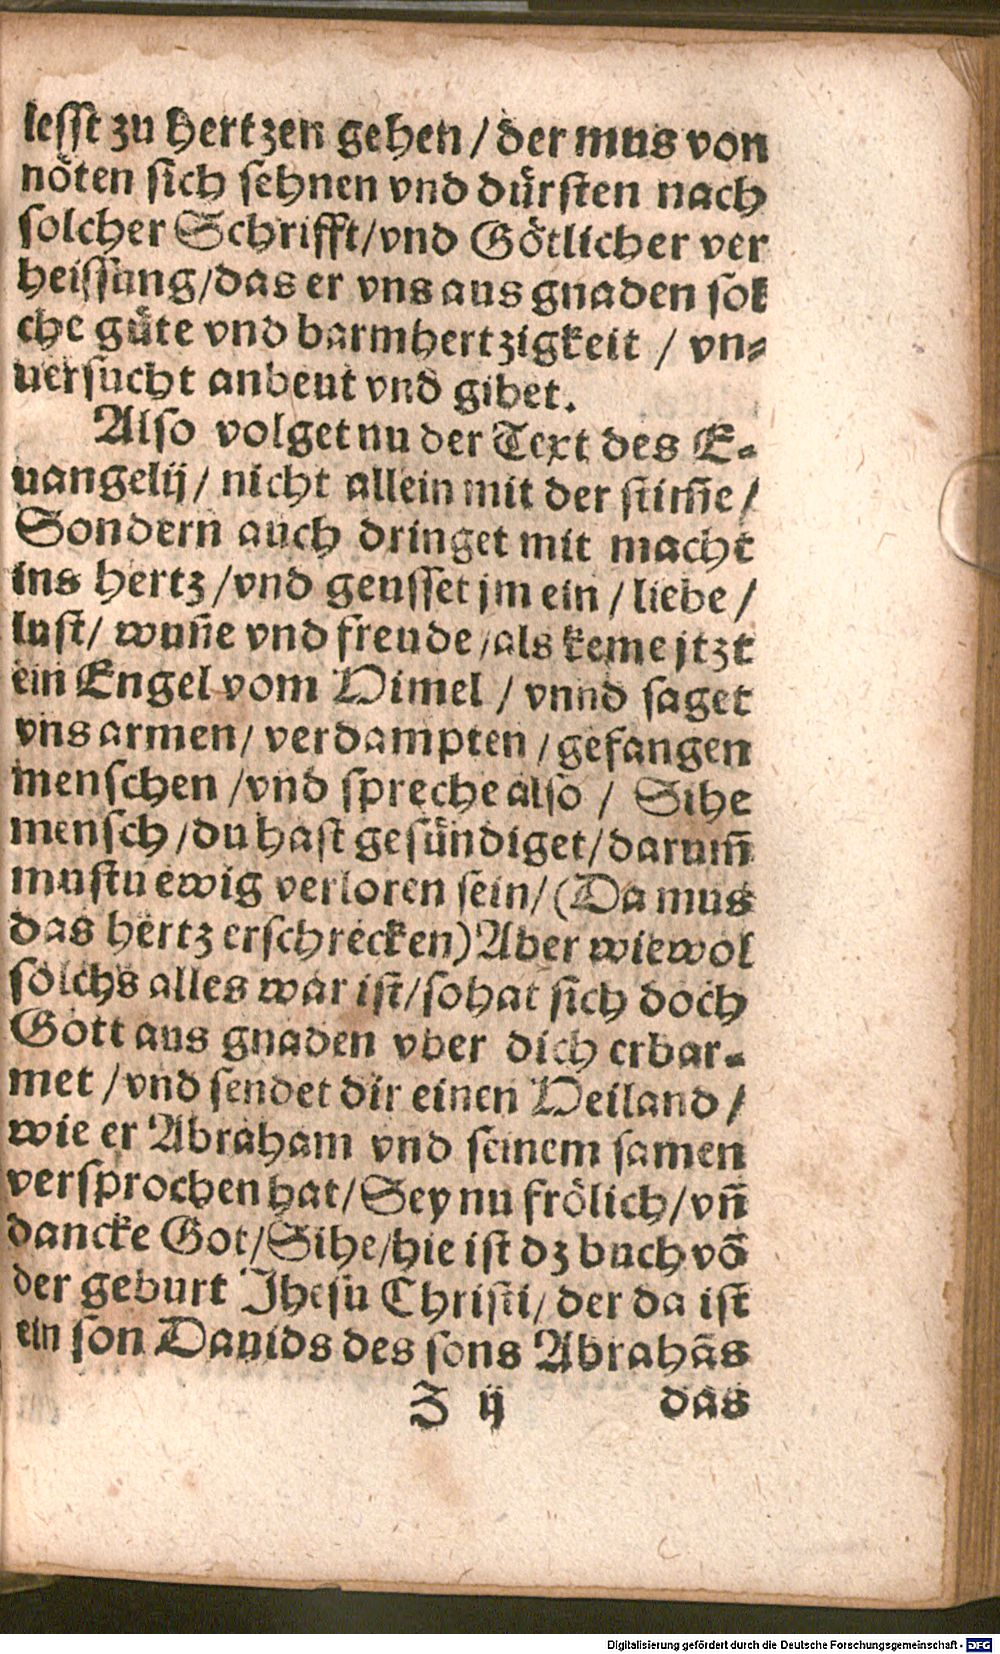 lesst zu Hertzen gehen / der mus von
nöten sich sehnen vnd dürsten nach
solcher Schrifft/vnd Götlicher ver
heissung/das er vns aus gnaden sol
che güte vnd barmhertzigkeit / vn⸗
uersucht anbeut vnd gibet.
Also volget nu der Text des E⸗
uangelij / nicht allein mit der stim̃e /
Sondern auch dringet mit macht
ins hertz /vnd geusset jm ein / liebe /
lust/ wuñe vnd freude /als keme jtzt
ein Engel vom Himel / vnnd saget
vns armen/ verdampten /gefangen
menschen /vnd spreche also / Sihe
mensch /du hast gesündiget/darum̃
mustu ewig verloren sein/ (Da mus
das hertz erschrecken) Aber wiewol
solchs alles war ist/so hat sich doch
Gott aus gnaden vber dich erbar⸗
met /vnd sendet dir einen Heiland /
wie er Abraham vnd seinem samen
versprochen hat/Sey nu frölich/vñ
dancke Got/Sihe/hie ist dz buch võ
der geburt Jhesu Christi/ der da ist
ein son Dauids des sons Abrahãs
Z ij das
Digitalisierung gefördert durch die Deutsche Forschungsgemeinschaft - DFG